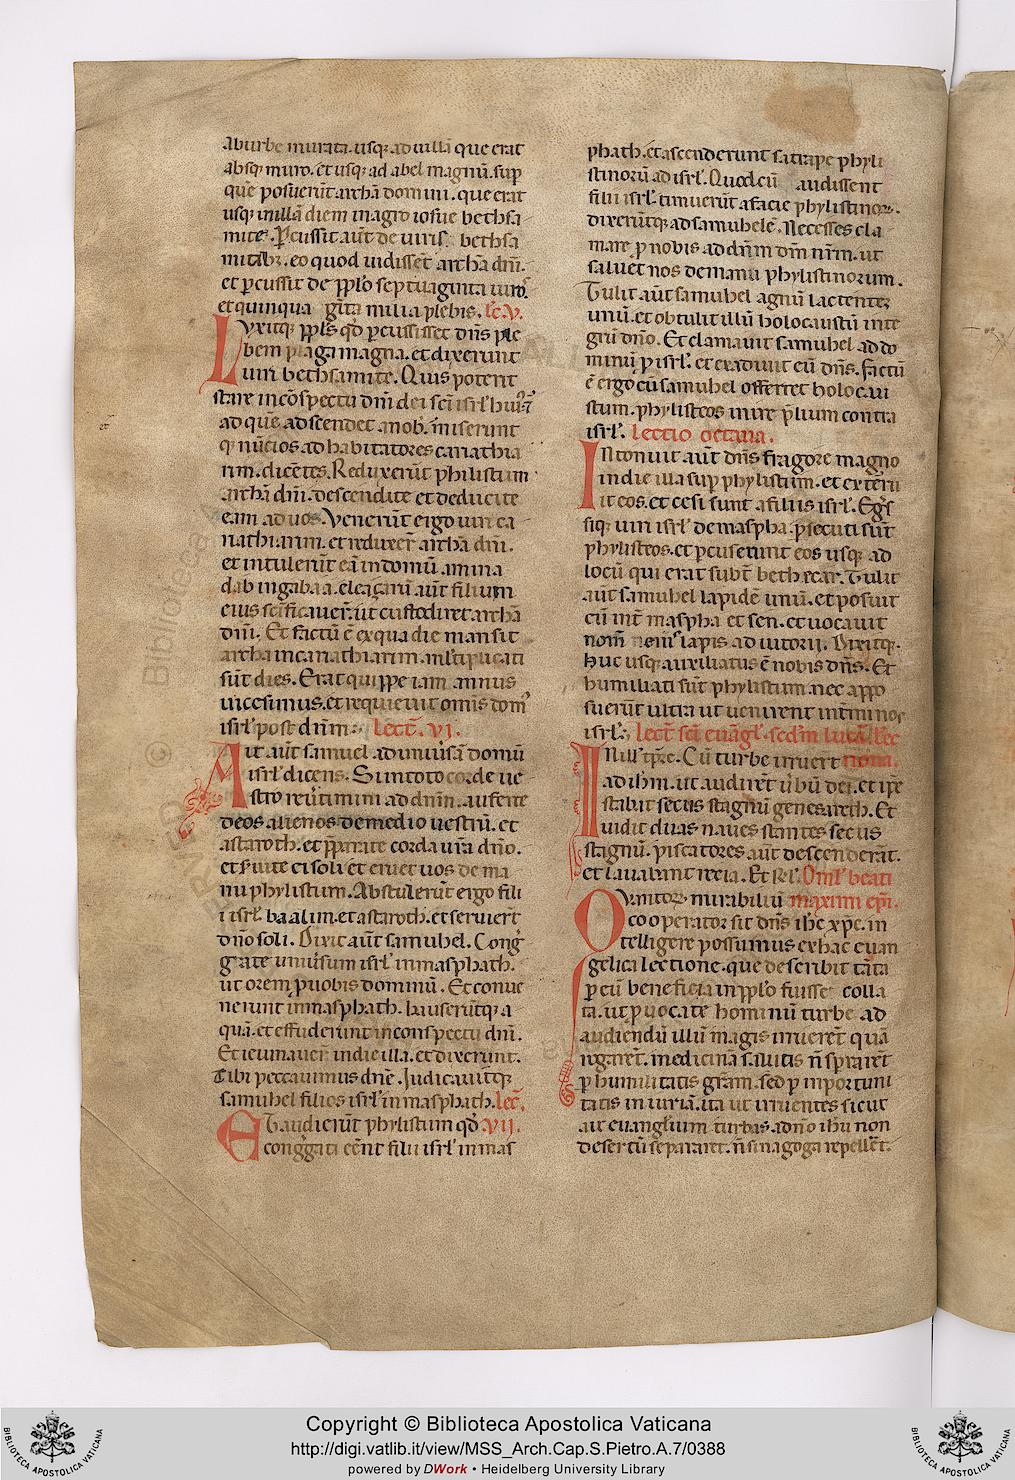 aburbe murata. usq; ad uillā que erat
absq; muro. et usq; ad abel magnū. sup
quē posuerūt archā domini. que erat
usq; in illā diem in agro iosue bethsa
mite. Percussit aūt de uiris bethsa
mitib; eo quod uidissēt archā dñi.
et percussit de pp̄lo septuaginta uiros.
et quinquaginta milia plebis. lc̄. V.
Luxitq; pp̄ls qđ percussisset dñs ple
bem plaga magna. et dixerunt
uiri bethsamite. Quis poterit
stare in cōspectu dñi dei sc̄i isrł huiꝰ. et
ad quē ascendet a nob. miserunt
q; nūcios ad habitatores cariathia
rim. dicētes. Reduxerūt philistiim
archā dñi. descendite et deducite
eam ad uos. Venerūt ergo uiri ca
riathiarim. et reduxer̄ archā dñi.
et intulerūt eā in domū amina
dab in gabaa. eleaçarū aūt filium
eius sc̄ificauer̄. ut custodiret archā
dñi. Et factū ē ex qua die mansit
archa in cariathiarim. mltiplicati
sūt dies. Erat quippe iam annus
uicesimus. et requieuit omis domꝰ
isrł post dñm. Lect̄. VI.
Ait aūt samuel ad uniuersā domū
isrł dicens. Si in toto corde ue
stro reuertimini ad dñm. auferte
deos alienos de medio uestrū. et
astaroth. et pparate corda ur̄a dño.
et seruite ei soli et eruet uos de ma
nu phylistiim. Abstulerūt ergo fili
i isrł baalim. et astaroth. et seruier̄t
dño soli. Dixit aūt samuhel. Cong̃
gate uniuersum isrł in masphath.
ut orem pro uobis dominū. Et conue
nerunt in masphath. hauserūtq; a
quā. et effuderunt in conspectu dñi.
Et ieiunauer̄ in die illa. et dixerunt.
Tibi peccauimus dnē. Judicauitq;
samuhel filios isrł in masphath. lect̄.
Et audierūt phylistiim qđ VII.
cong̃gati eēnt filii isrł in mas
phath. et ascenderunt satrape phyli
stinorū ad isrł. Quod cū audissent
filii isrł. timuerūt a facie phylistinoꝝ.
dixerūtq; ad samuhelē. Ne cesses cla
mare p nobis ad dñm dm̄ nr̄m. ut
saluet nos de manu phylistinorum.
Tulit aūt samuhel agnū lactentē
unū. et obtulit illū holocaustū inte
grū dño. Et clamauit samuhel ad do
minū p isrł. et exadiuit eū dñs. Factū
ē ergo cū samuhel offerret holocau
stum. phylisteos inire prelium contra
isrł. Lectio octaua.
Intonuit aūt dñs fragore magno
in die illa sup phylistiim. et exteru
it eos. et cesi sunt a filiis isrł. Egs
siq; uiri isrł de maspha. psecuti sūt
phylisteos. et pcuserunt eos usq; ad
locū qui erat subt bethcar. Tulit
aūt samuhel lapidē unū. et posuit
eū int̄ maspha et sen. et uocauit
nom̄ lapis adiutorii. Dixitq;
huc usq; auxiliatus ē nobis dñs. Et
humiliati sūt phylistiim. nec appo
suerūt ultra ut uenirent in tminos
isrł. Lect̄ sc̄i euāgł. scd̄m lucā. lec
In illo tpr̄e. Cū turbe irruer̄t nona.
ad ih̄m. ut audirēt ūbū dei. et ip̄e
stabat secus stagnū genesareth. Et
uidit duas naues stantes secus
stagnū. piscatores aūt descenderāt.
et lauabant recia. Et rl̄. Oml̄ beati
Quantorꝫ mirabiliū maximi epī.
cooperator sit dñs ih̄c xp̄c. in
telligere possumus ex hac euan
gelica lectione. que describit tāta
p eū beneficia in pp̄lo fuisse colla
ta. ut puocate hominū turbe ad
audiendū illū magis irruerēt quā
rogarēt. medicinā salutis ñ sperarēt
p humilitatis gr̄am. sed p inportuni
tatis iniuriā. ita ut irruentes sicut
ait euanglium turbas a dño ih̄u non
desertū separaret. ñ sinagoga repellēt.
et
Copyright © Biblioteca Apostolica Vaticana
http://digi.vatlib.it/view/MSS_Arch.Cap.S.Pietro.A.7/0388
powered by DWork • Heidelberg University Library
BIBLIOTECA APOSTOLICA VATICANA
BIBLIOTECA APOSTOLICA VATICANA